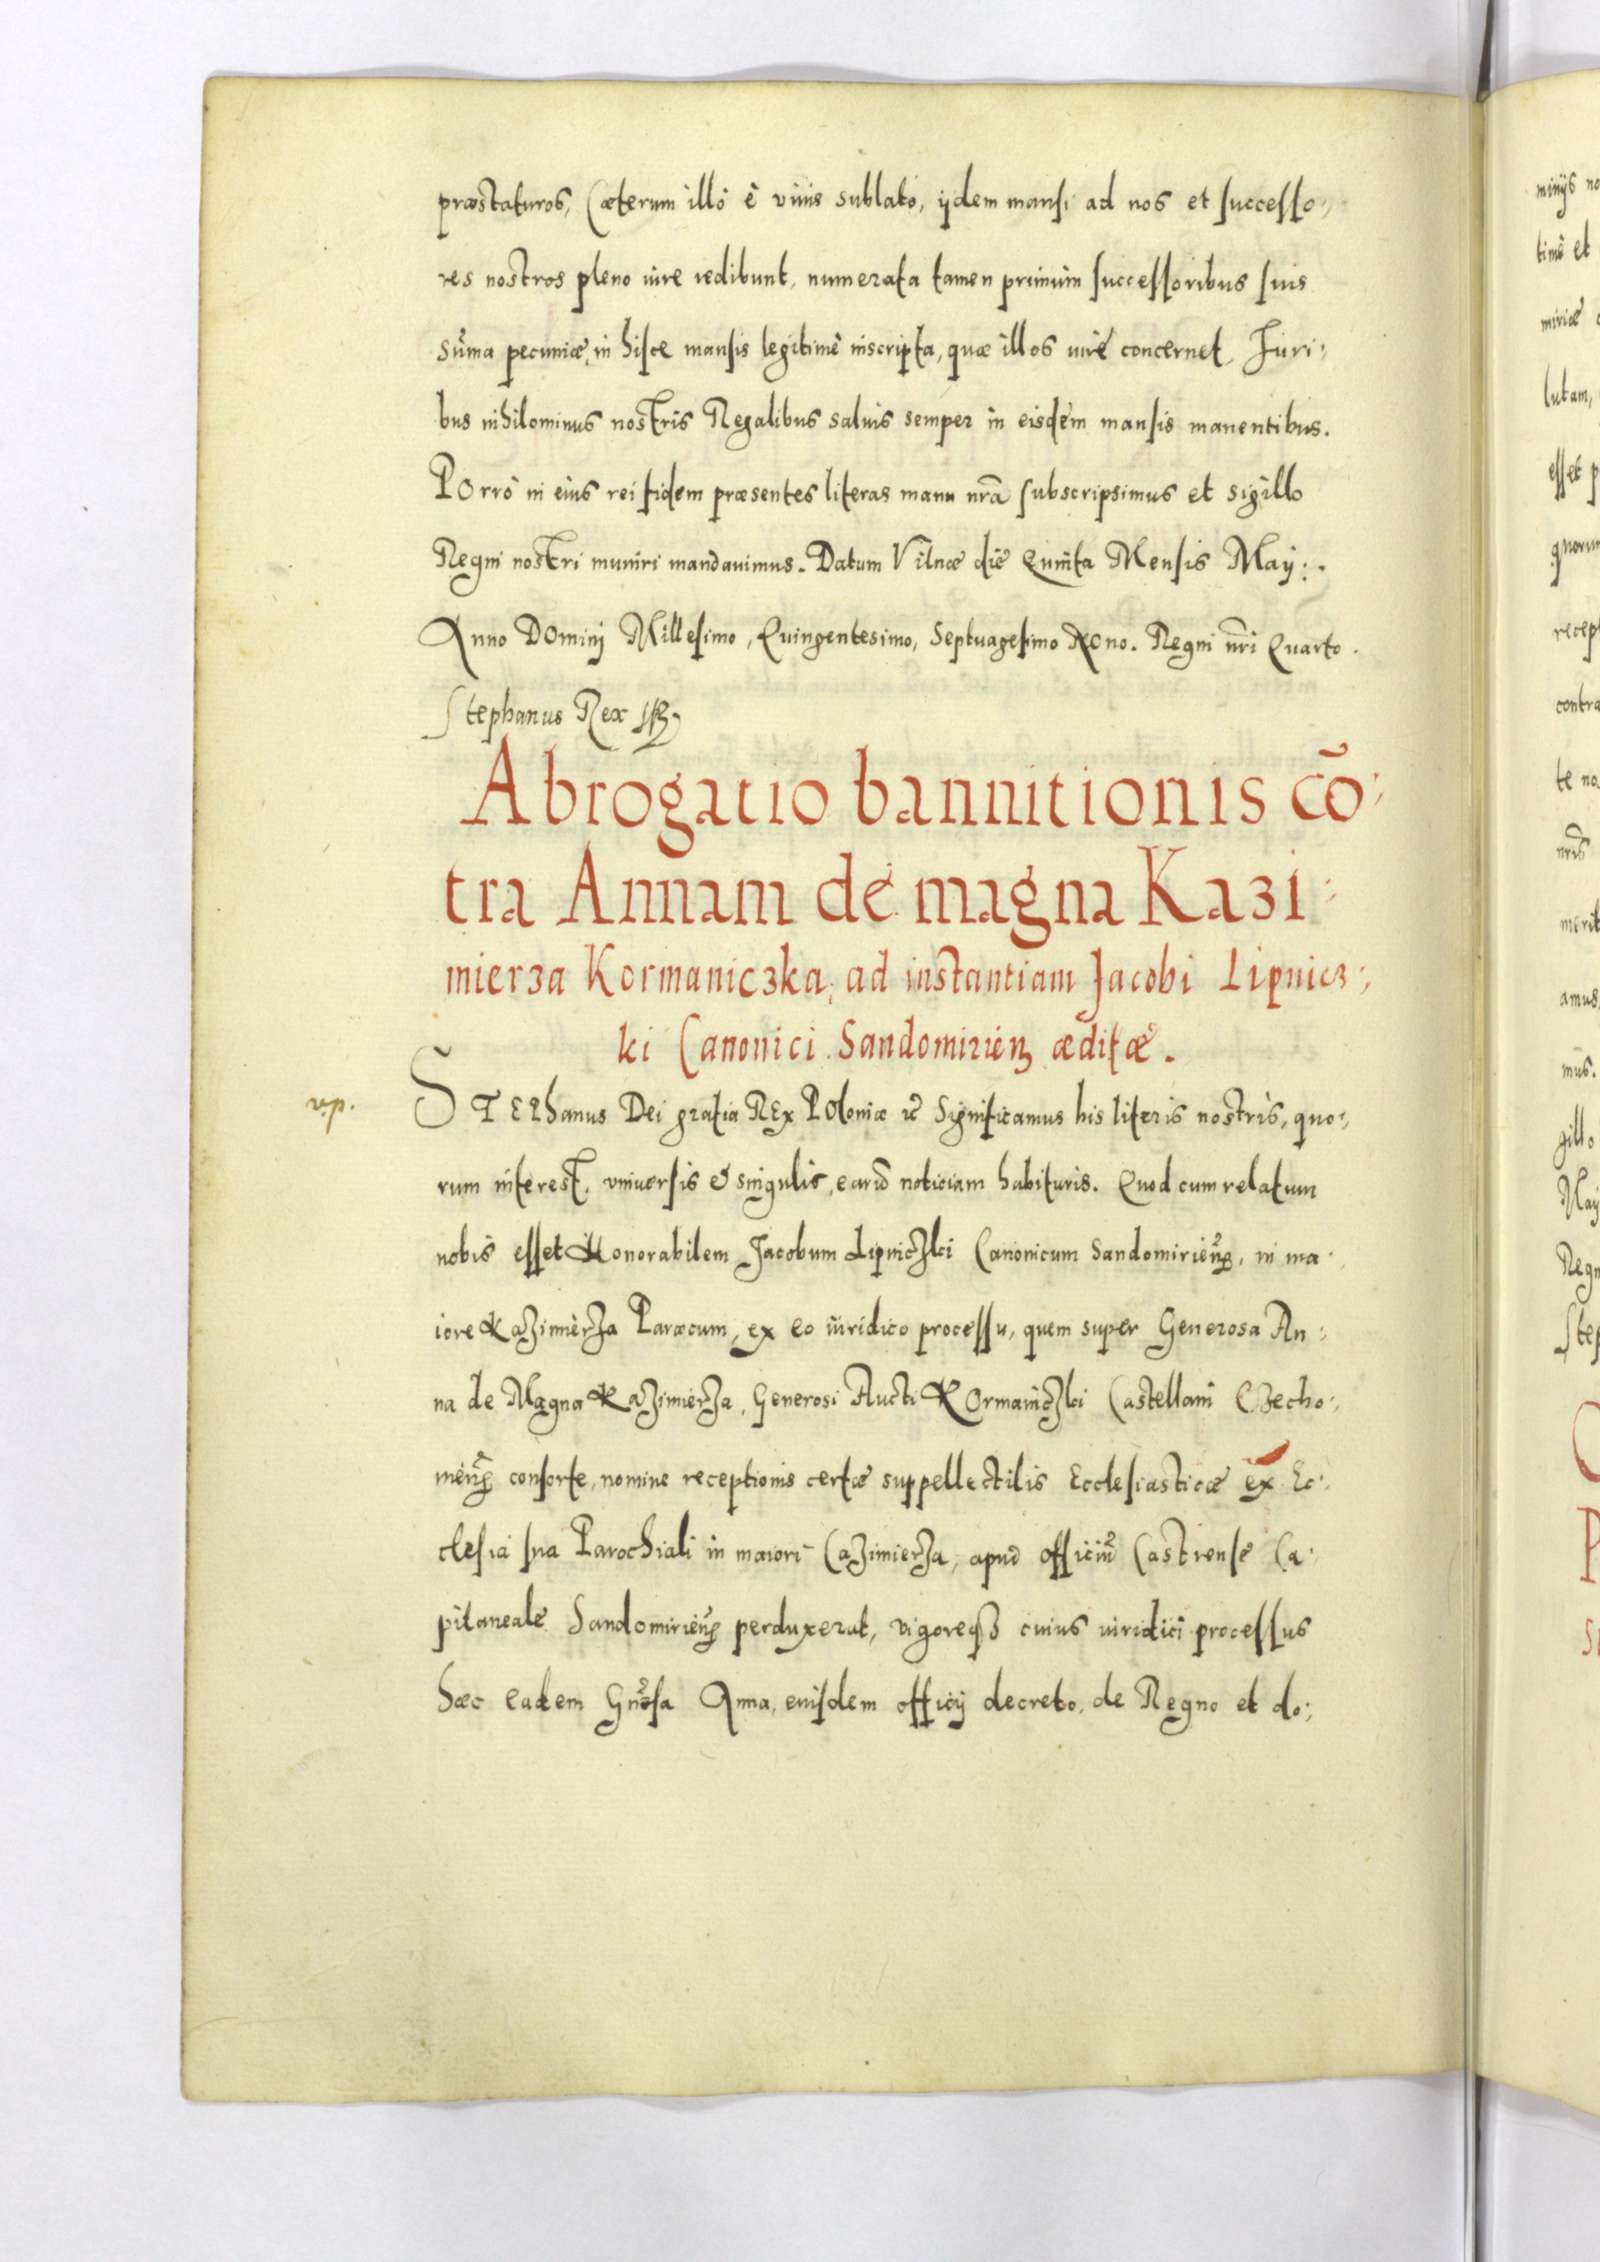 præstaturos, Cæterum illò è viuis sublato, ijdem mansi ad nos et successo:,
res nostros pleno iure redibunt, numerata tamen primùm successoribus suis
sum̃a pecuniæ, in hisce mansis legitimè inscripta, quæ illos iurè concernet, Iuri:,
bus nihilominus nostris Regalibus saluis semper in eisdem mansis manentibus.
POrrò in eius rei fidem præsentes literas manu nr̃a subscripsimus et sigillo
Regni nostri muniri mandauimus. Datum Vilnæ die Quinta Mensis Maij:.
Anno DOmini Millesimo, Quingentesimo, Septuagesimo NOno. Regni nr̃i Quarto.
Stephanus Rex
Abrogatio bannitionis cõ:,
tra Annam de magna Kazi:
mierza Kormaniczka, ad instantiam Jacobi Lipnicz:,
ki Canonici Sandomirieñ æditæ.
v.p.
STEPhanus Dei gratia REx POloniæ etc̃ Significamus his literis nostris, quo:,
rum interest, vniuersis & singulis, earũ noticiam habituris. Quod cum relatum
nobis esset HOnorabilem Jacobum Lipniczki Canonicum Sandomirieñ, in ma:
iore KaZimierZa Paræcum, ex eo iuridico processu, quem super Generosa An:,
na de Magna KaZimierZa, Generosi Aucti KOrmaniczki Castellani CZecho:,
uieñ consorte, nomine receptionis certæ suppellectilis Ecclesiasticæ ex Ec:
clesia sua Parochiali in maiori CaZimierZa, apud officiũ Castrense Ca:
pitaneale Sandomirieñ perduxerat, vigoreqʒ cuius iuridici processus
hæc eadem Gñosa Anna, eiusdem officij decreto, de Regno et do:,